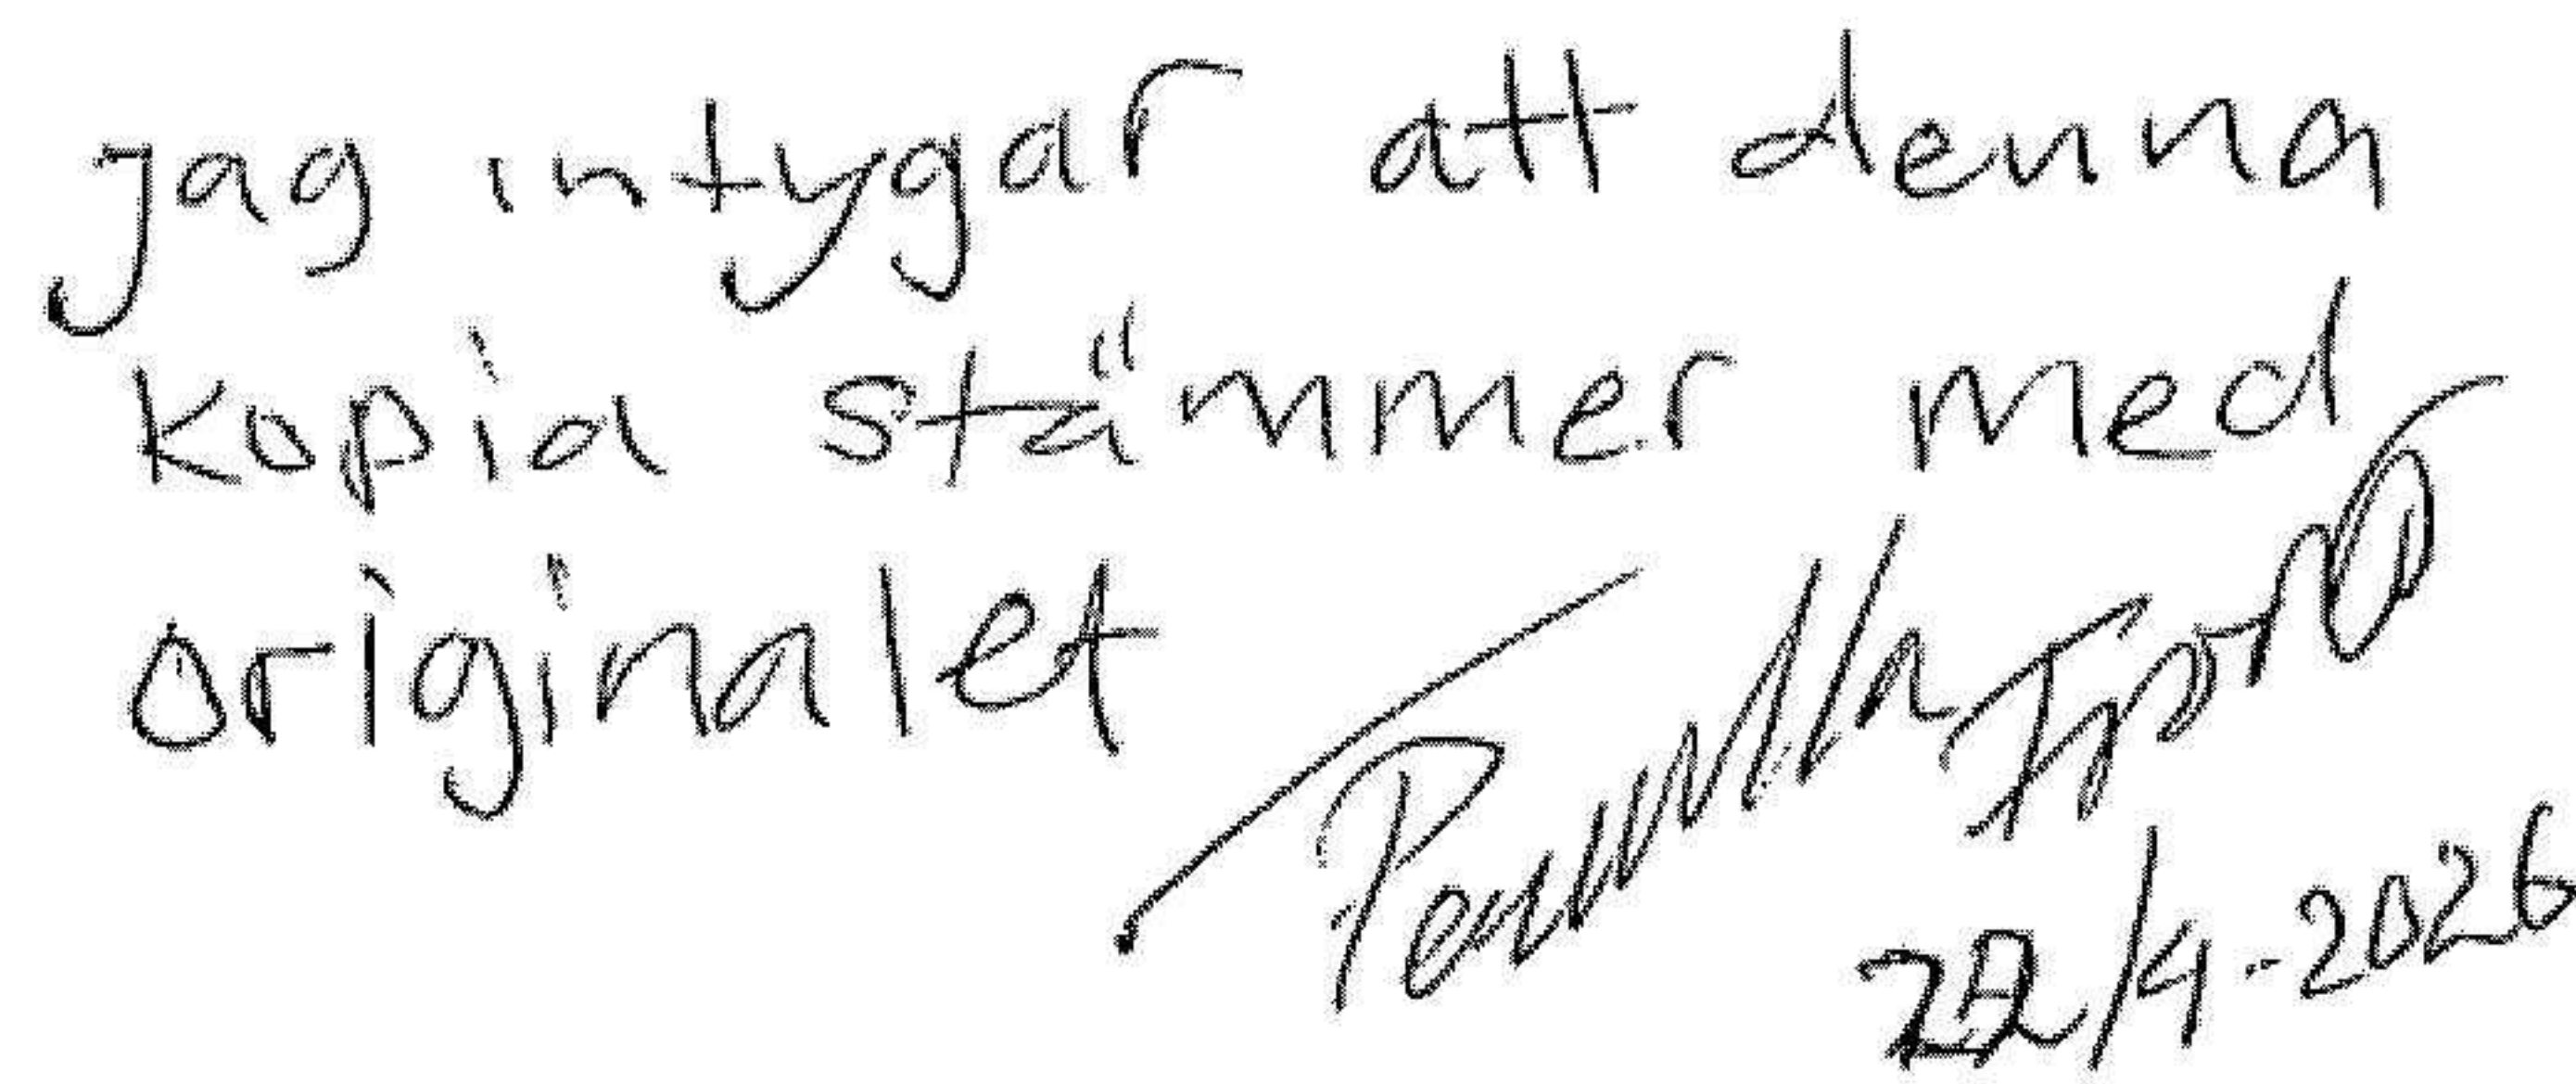 jag intygar att denna
kopia stämmer med
originalet
Pernilla
22/4-2026